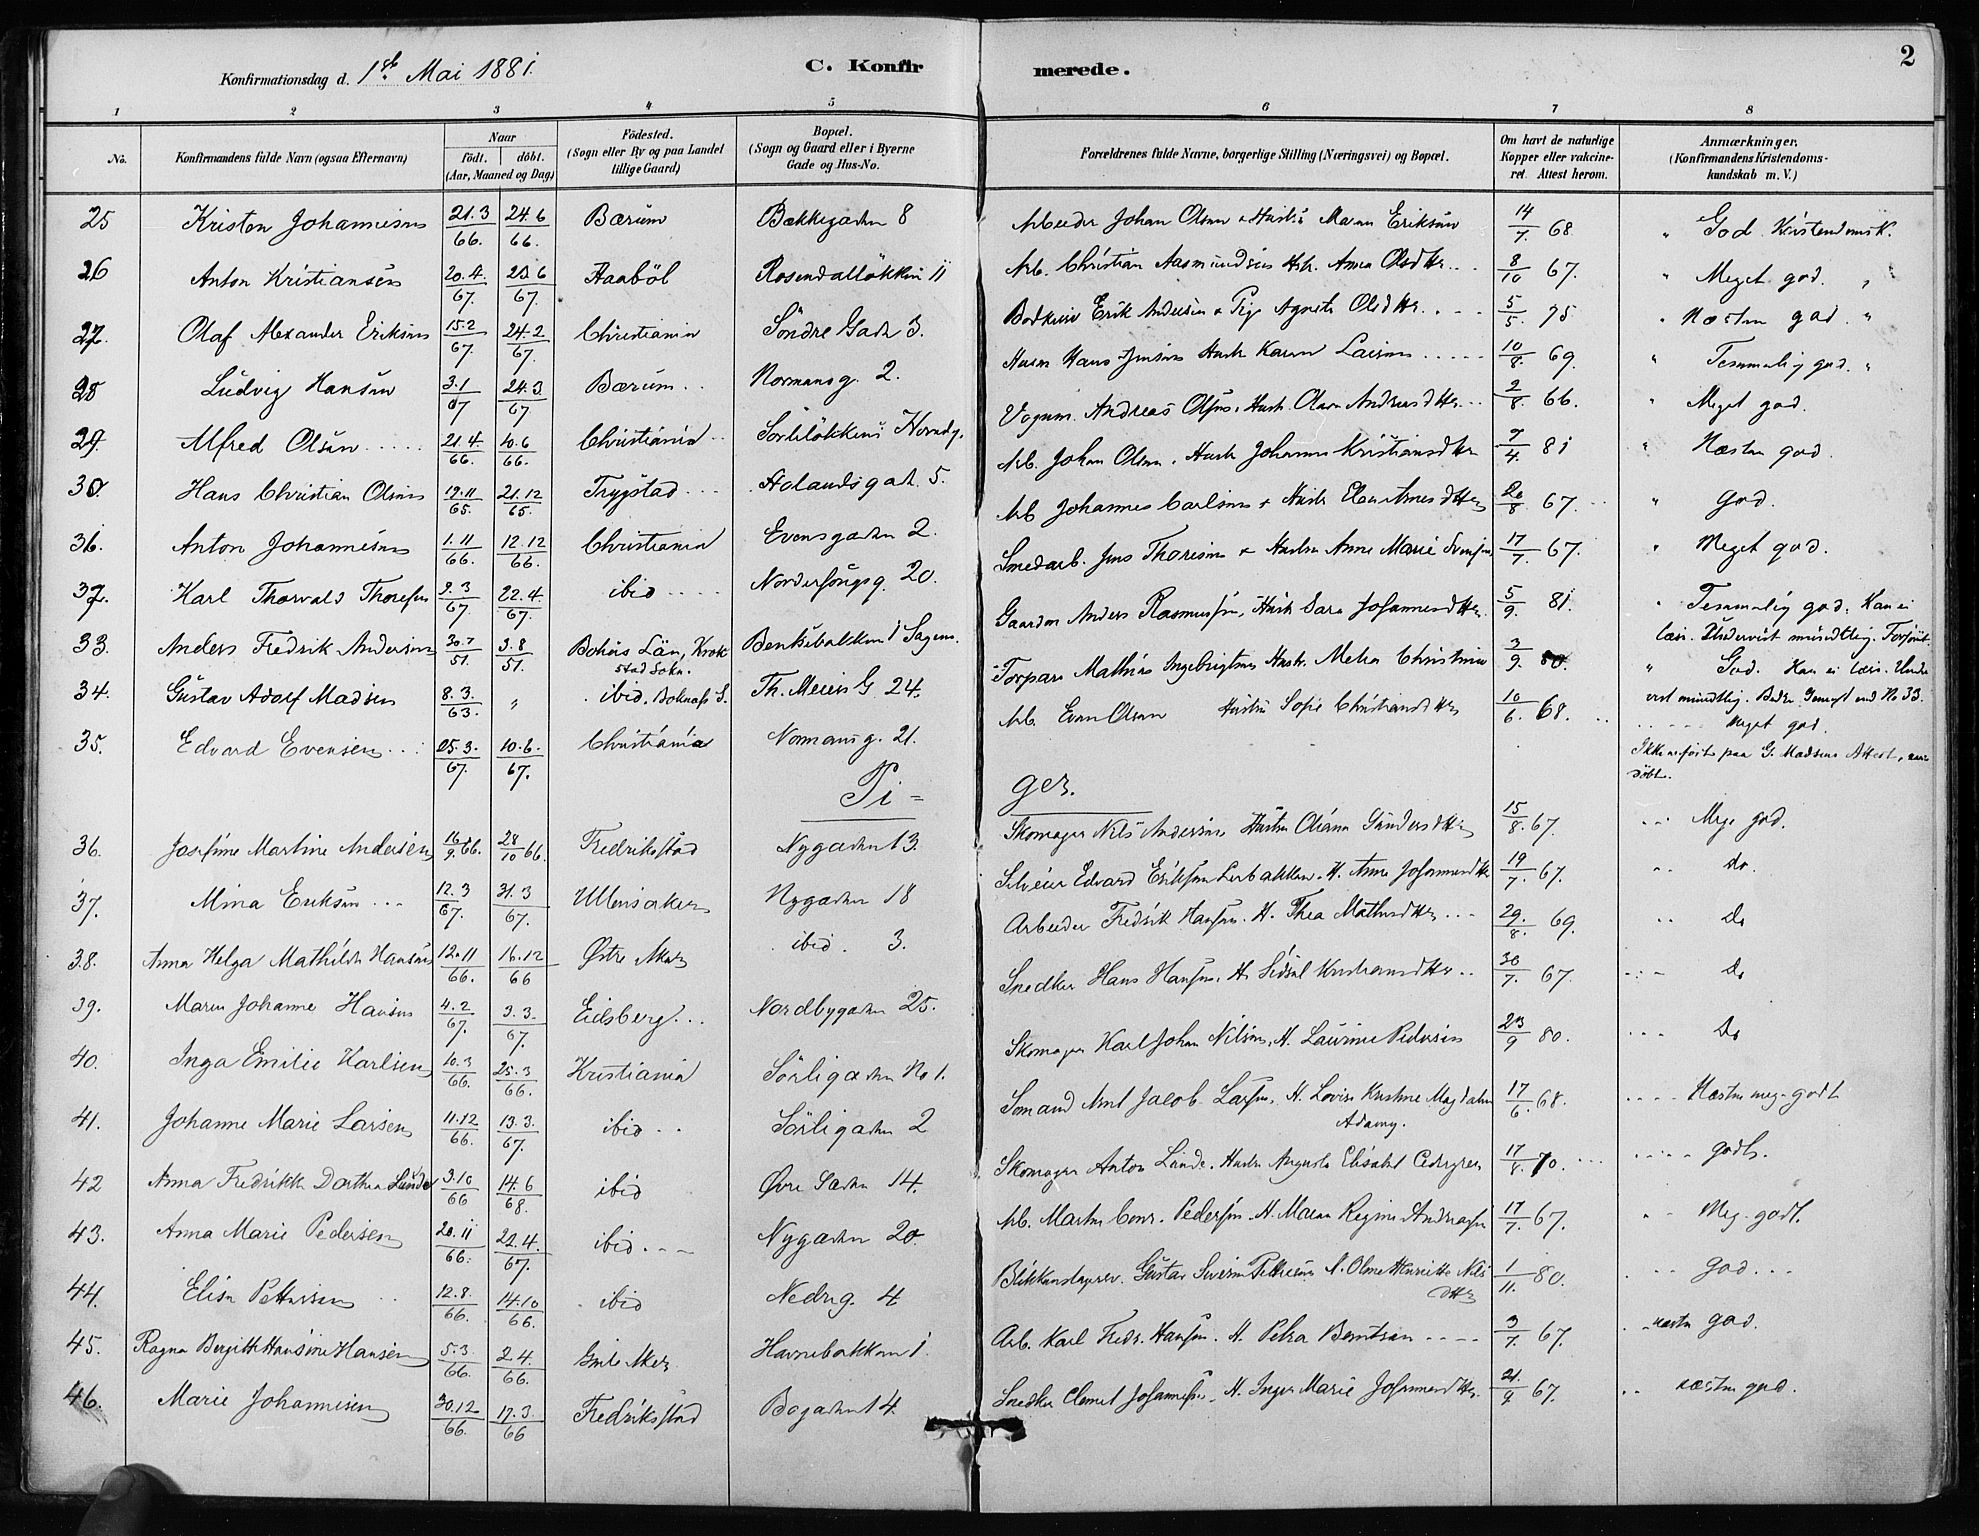 Konfirmationsdag d. 1ste Mai 1881.
C. Konfirmerede.
2
1 2 3 4 5 6 7 8
No.
Konfirmandens fulde Navn (ogsaa Efternavn)
Naar
født. døbt.
(Aar, Maaned og Dag)
Födested.
(Sogn eller By og paa Landet
tillige Gaard)
Bopæl.
(Sogn og Gaard eller i Byerne
Gade og Hus-No.
Forældrenes fulde Navne, borgerlige Stilling (Næringsvei) og Bopæl.
Om havt de naturlige
Kopper eller vakcine-
ret. Attest herom.
Anmærkninger.
(Konfirmandens Kristendoms-
kundskab m. V.)
25 Kristen Johannesen 21.3 66. 24.6 66. Bærum Bækkegaden 8 Arbeider Johan Olsen & Hustru Maren Eriksen 14/7 68 " God Kristendomsk.
26 Anton Kristiansen 20.4. 67. 23.6 67. Haaböl Rosendalløkken 11 Arb. Christian Aasmundsen Hstr. Anna Olsdttr. 8/10 67. " Meget god. "
27. Olaf Alexander Eriksen 15.2 67. 24.2 67. Christiania Söndre Gade 3. Erik Andersen & Pige Agnete Olsdttr. 5/5. 75 " Næsten god. "
28 Ludvig Hansen 3.1 67 24.3 67 Bærum Normansg. 2. Husm Hans Jensen Hustr Karen Larsen 10/8. 69. " Temmelig god. "
29. Alfred Olsen 21.4. 66. 10.6 66. Christiania Sörliløkkens Andreas Olsen, Hustr. Andreasdttr 2/8. 66. " Meget god.
30. Hans Christian Olsen 19.11 65. 21.12 65. Trygstad Hölandsgad. 5. Arb. Johan Olsen, Hustr Johanne Kristiansdttr 7/4. 81 " Næsten god.
31. Anton Johannesen 1.11 66. 12.12 66. Christiania Evensgaden 2. Arb Johannes Carlsen & Hustr 20/8 67. " god.
32. Karl Thorvald Thoresen 9.3 67. 22.4. 67. ibid Nordenfongsg. 20. Smedarb. Jens Thoresen & Hustru Anne Marie Svensen 17/7 67. " Meget god.
33. Anders Fredrik Andersen 30.7 51. 3.8 51. Bohus Län, Krok
stad Sokn. Benkebakken 1 Sagene. Gaardm Anders Rasmussen, Hustr Sara Johannesdttr. 5/9. 81. " Temmelig god. Kan ei
læse. Undervist mundtlig.
34. Gustav Adolf Madsen 8.3. 63. " ibid, S. Th. Meiers G. 24. Torpare Mathias Ingebrigtsen Hustr. Metea Christine 3/9. 80. " God. Kan ei læse. Under
vist mundtlig. No 33.
35. Edvard Evensen 25.3. 67. 10.6. 67. Christiania Normansg. 21. Arb. Even Olsen Hustru Sofie Christiansdttr 10/6. 68. meget god.
Ikke anført paa G. Madsens Attest, naar
döbt.
Pi=
ger.
36. Josefine Martine Andersen 16/9. 66. 28/10 66. Fredriksstad Nygaden 13. Skomager Nils Andersen Hustru Oliana Gundersdttr 15/8. 67. Mege god.
37. Mina Eriksen 12.3 67. 31.3 67. Ullensaker Nygaden 18 Edvard Eriksen Lerbakken. H. Anne Johannesdttr 19/7. 67. do
38. Anna Helga Mathilde Hansen 12.11 66. 16.12 66 Østre Aker ibid. 3. Arbeider Fredrik Hansen. H. Thea Mathisdttr 29/8. 69. do
39. Maren Johanne Hansen 4.2 67. 3.3. 67. Eidsberg Nordbygaden 25. Snedker Hans Hansen, H. Sidsel Kristiansdttr 30/7. 67. do
40. Inga Emilie Karlsen 10.3 66. 25.3 66. Kristiania Sörligaden No 1. Skomager Karl Johan Nilsen, H. Laurine Pedersen 23/9 80. do
41. Johanne Marie Larsen 11.12 66. 13.3. 67. ibid Sörligaden 2 Sömand Jacob Larsen, H. Lovise Kristine Magdalene
17/6. 68. Næsten meg. godt
42 Anna Fredrikke Dorthea Lunde 3.10 66 14.6 68. ibid Øvre Gaden 14. Skomager Anton Lunde. Hustru Augusta Elisabet Cedergren 17/8. 70. godt.
43. Anna Marie Pedersen 20.11 66. 22.4. 67. ibid Nygaden 20. Arb. Martin Pedersen H. Maren Regine Andreasen 17/7. 67. Meg. godt.
44. Elise Pettersen 12.8. 66. 14.10 66. ibid Nedreg. 4 Blikkenslagersv. Gustav Severin Pettersen H. Oline Henriette Nils
dttr 1/11. 80. god
45. Ragna Bergitte Hansine Hansen 5.3. 66. 2.4. 66. Aker Havnebakken 1. Arb. Karl Fredr. Hansen. H. Petra Berntsen 3/7. 67. næsten god.
46. Marie Johannesen 30.12 66. 17.3. 66 Fredriksstad Bogaden 14. Snedker Clemet Johannesen. H. Inger Marie Johannesdttr. 21./9 67. næsten god.